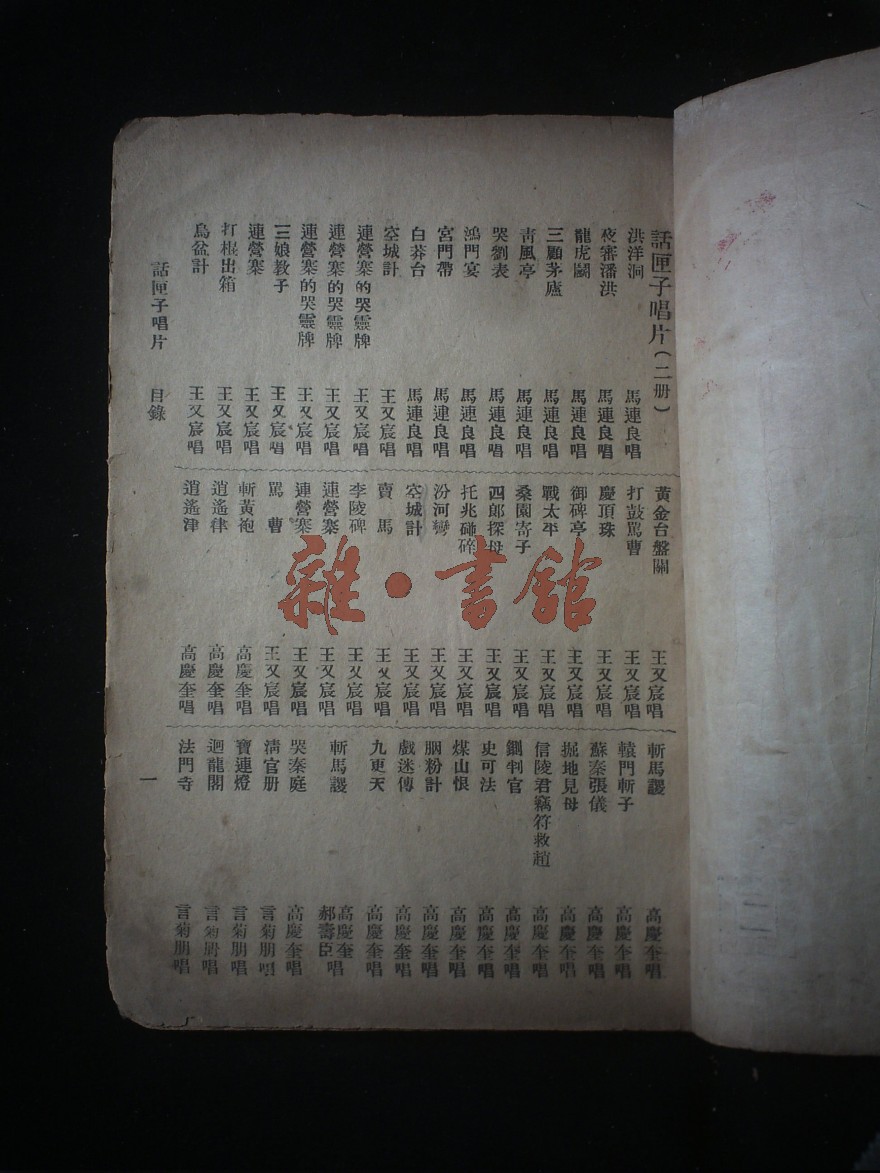 話匣子唱片（二册）
洪洋洞 馬連良唱
夜審潘洪 馬連良唱
龍虎鬭 馬連良唱
三顧茅廬 馬連良唱
青風亭 馬連良唱
哭劉表 馬連良唱
鴻門宴 馬連良唱
宮門帶 馬連良唱
白莽台 馬連良唱
空城計 王又宸唱
連營寨的哭靈牌 王又宸唱
連營寨的哭靈牌 王又宸唱
連營寨的哭靈牌 王又宸唱
三娘教子 王又宸唱
連營寨 王又宸唱
打棍出箱 王又宸唱
烏盆計 王又宸唱
黃金台盤關 王又宸唱
打鼓罵曹 王又宸唱
慶頂珠 王又宸唱
御碑亭 王又宸唱
戰太平 王又宸唱
桑園寄子 王又宸唱
四郎探母 王又宸唱
托兆碰碑 王又宸唱
汾河彎 王又宸唱
空城計 王又宸唱
賣馬 王又宸唱
李陵碑 王又宸唱
連營寨 王又宸唱
連營寨 王又宸唱
罵曹 王又宸唱
斬黃袍 高慶奎唱
逍遙律 高慶奎唱
逍遙津 高慶奎唱
斬馬謖 高慶奎唱
轅門斬子 高慶奎唱
蘇秦張儀 高慶奎唱
掘地見母 高慶奎唱
信陵君竊符救趙 高慶奎唱
鍘判官 高慶奎唱
史可法 高慶奎唱
煤山恨 高慶奎唱
胭粉計 高慶奎唱
戲迷傳 高慶奎唱
九更天 高慶奎唱
斬馬謖 高慶奎 郝壽臣 唱
哭秦庭 高慶奎唱
清官册 言菊朋唱
寶連燈 言菊朋唱
迴龍閣 言菊朋唱
法門寺 言菊朋唱
話匣子唱片 目錄 一
雜·書館